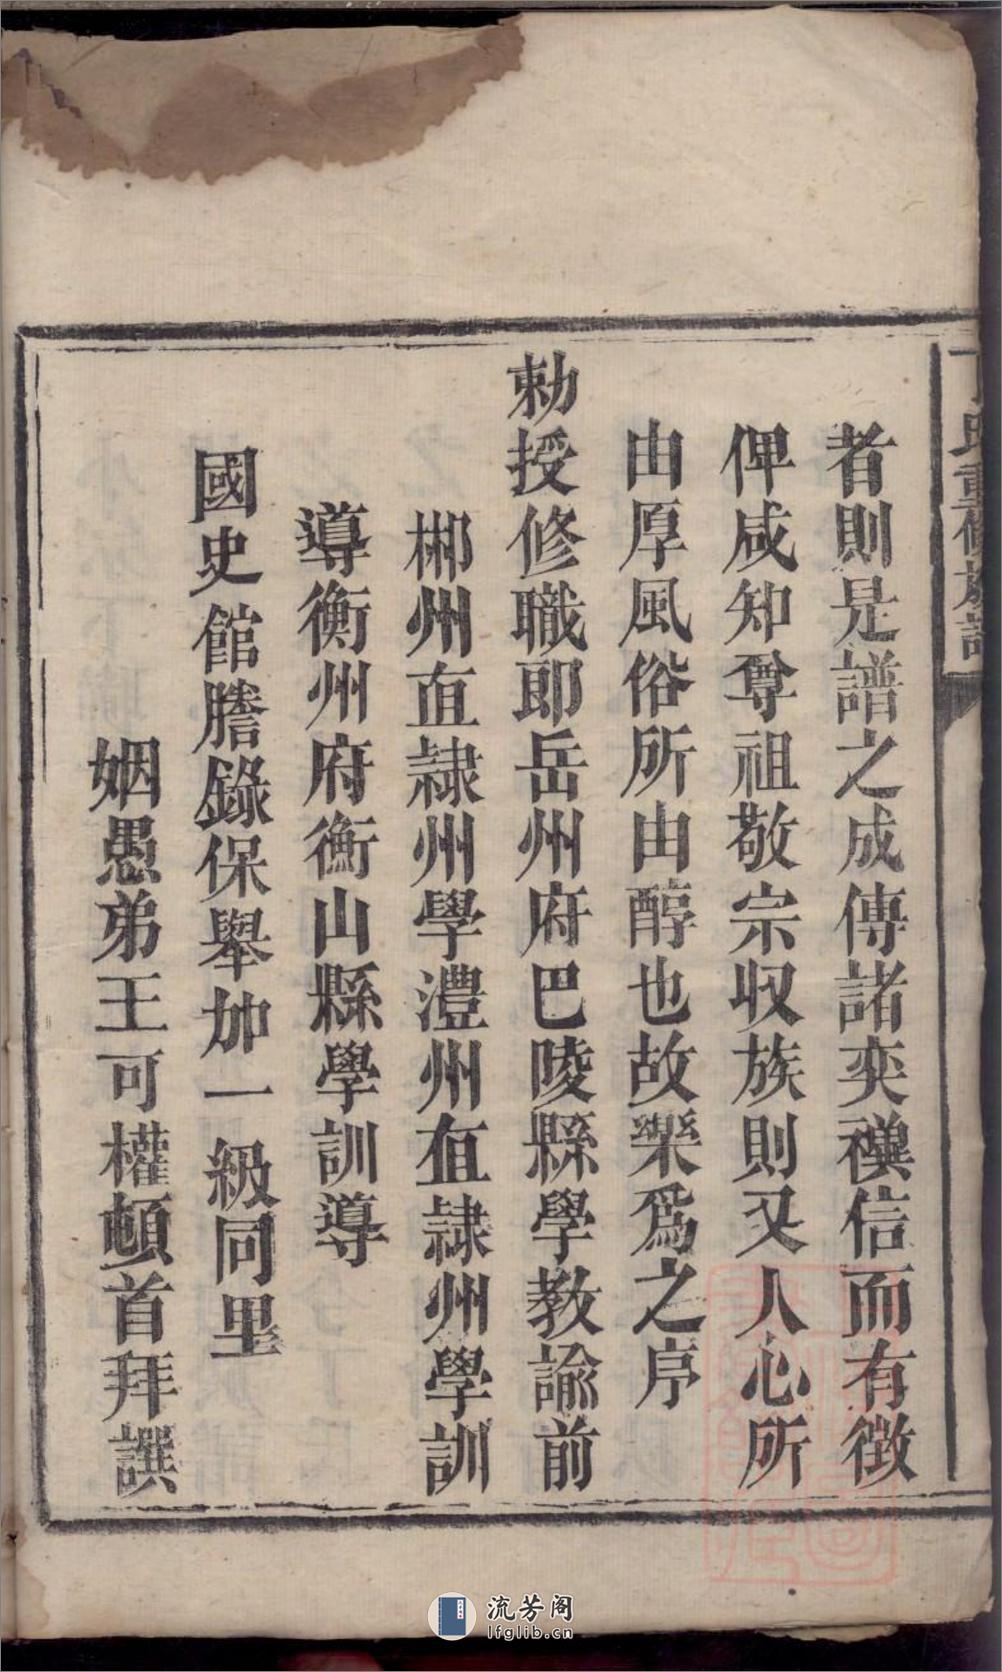 丁氏重修族譜
者則是譜之成傳諸奕禩信而有徴
俾咸知尊祖敬宗収族則又人心所
由厚風俗所由醇也故樂爲之序
勅授修職郎岳州府巴陵縣學教諭前
郴州直隸州學澧州直隸州學訓
導衡州府衡山縣學訓導
國史館謄錄保舉加一級同里
姻愚弟王可權頓首拜譔
流芳阁
lfglib.cn